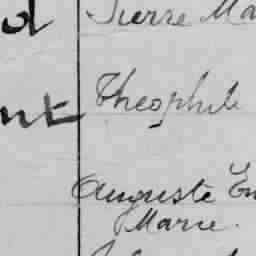 Pierre Ma
Théophile
Auguste Em
Marie.